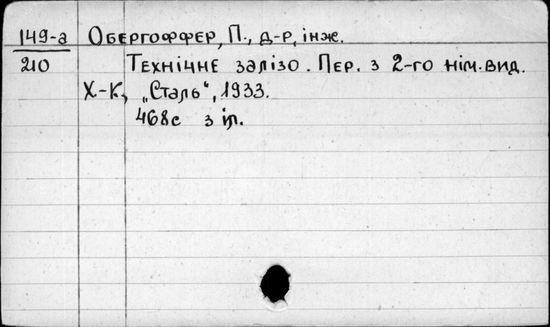 149-а Обергоффер, П., д-р, інж.
210 Технічне залізо. Пер. з 2-го нім. вид.
Х-К, „Сталь“, 1933.
468с з іл.